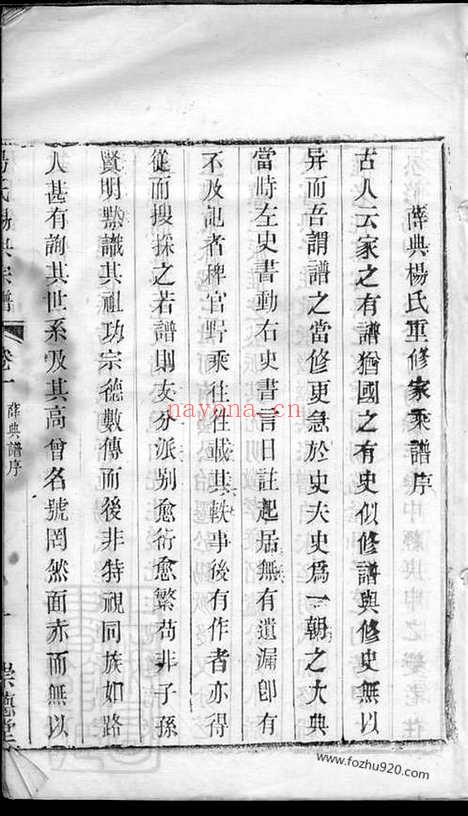 薛典楊氏重修家乘譜序
古人云家之有譜猶國之有史似修譜與修史無以
异而吾謂譜之當修更急於史夫史爲一朝之大典
當時左史書動右史書言日註起居無有遺漏卽有
不及記者稗官野乘往往載其軼事後有作者亦得
從而搜採之若譜則支分派别愈衍愈繁苟非子孫
賢明默識其祖功宗德數傳而後非特視同族如路
人甚有詢其世系及其高曾名號罔然面赤而無以
楊氏楊典宗譜
卷一
薛典譜序
一
崇德堂
nayona.cn
www.fozhu920.com